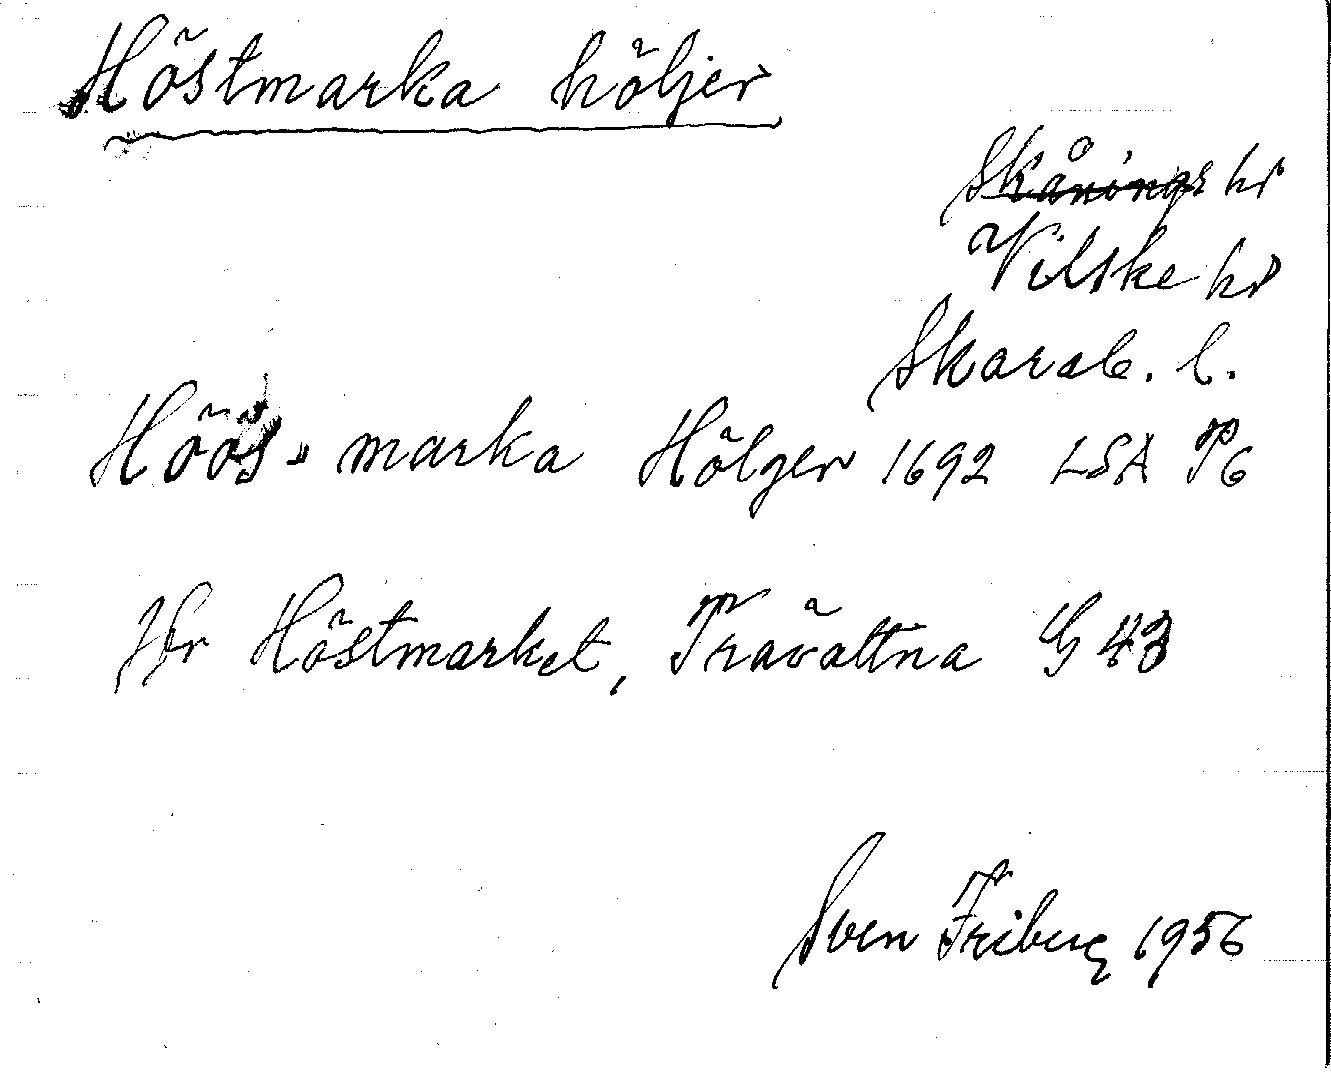 Höstmarka höljer
Skånings hd
Vilske hd
Skarab. l.
Höös- marka Hölger 1692 LSA P6
Jfr Höstmarket, Trävattna G 43
Sven Friberg 1956